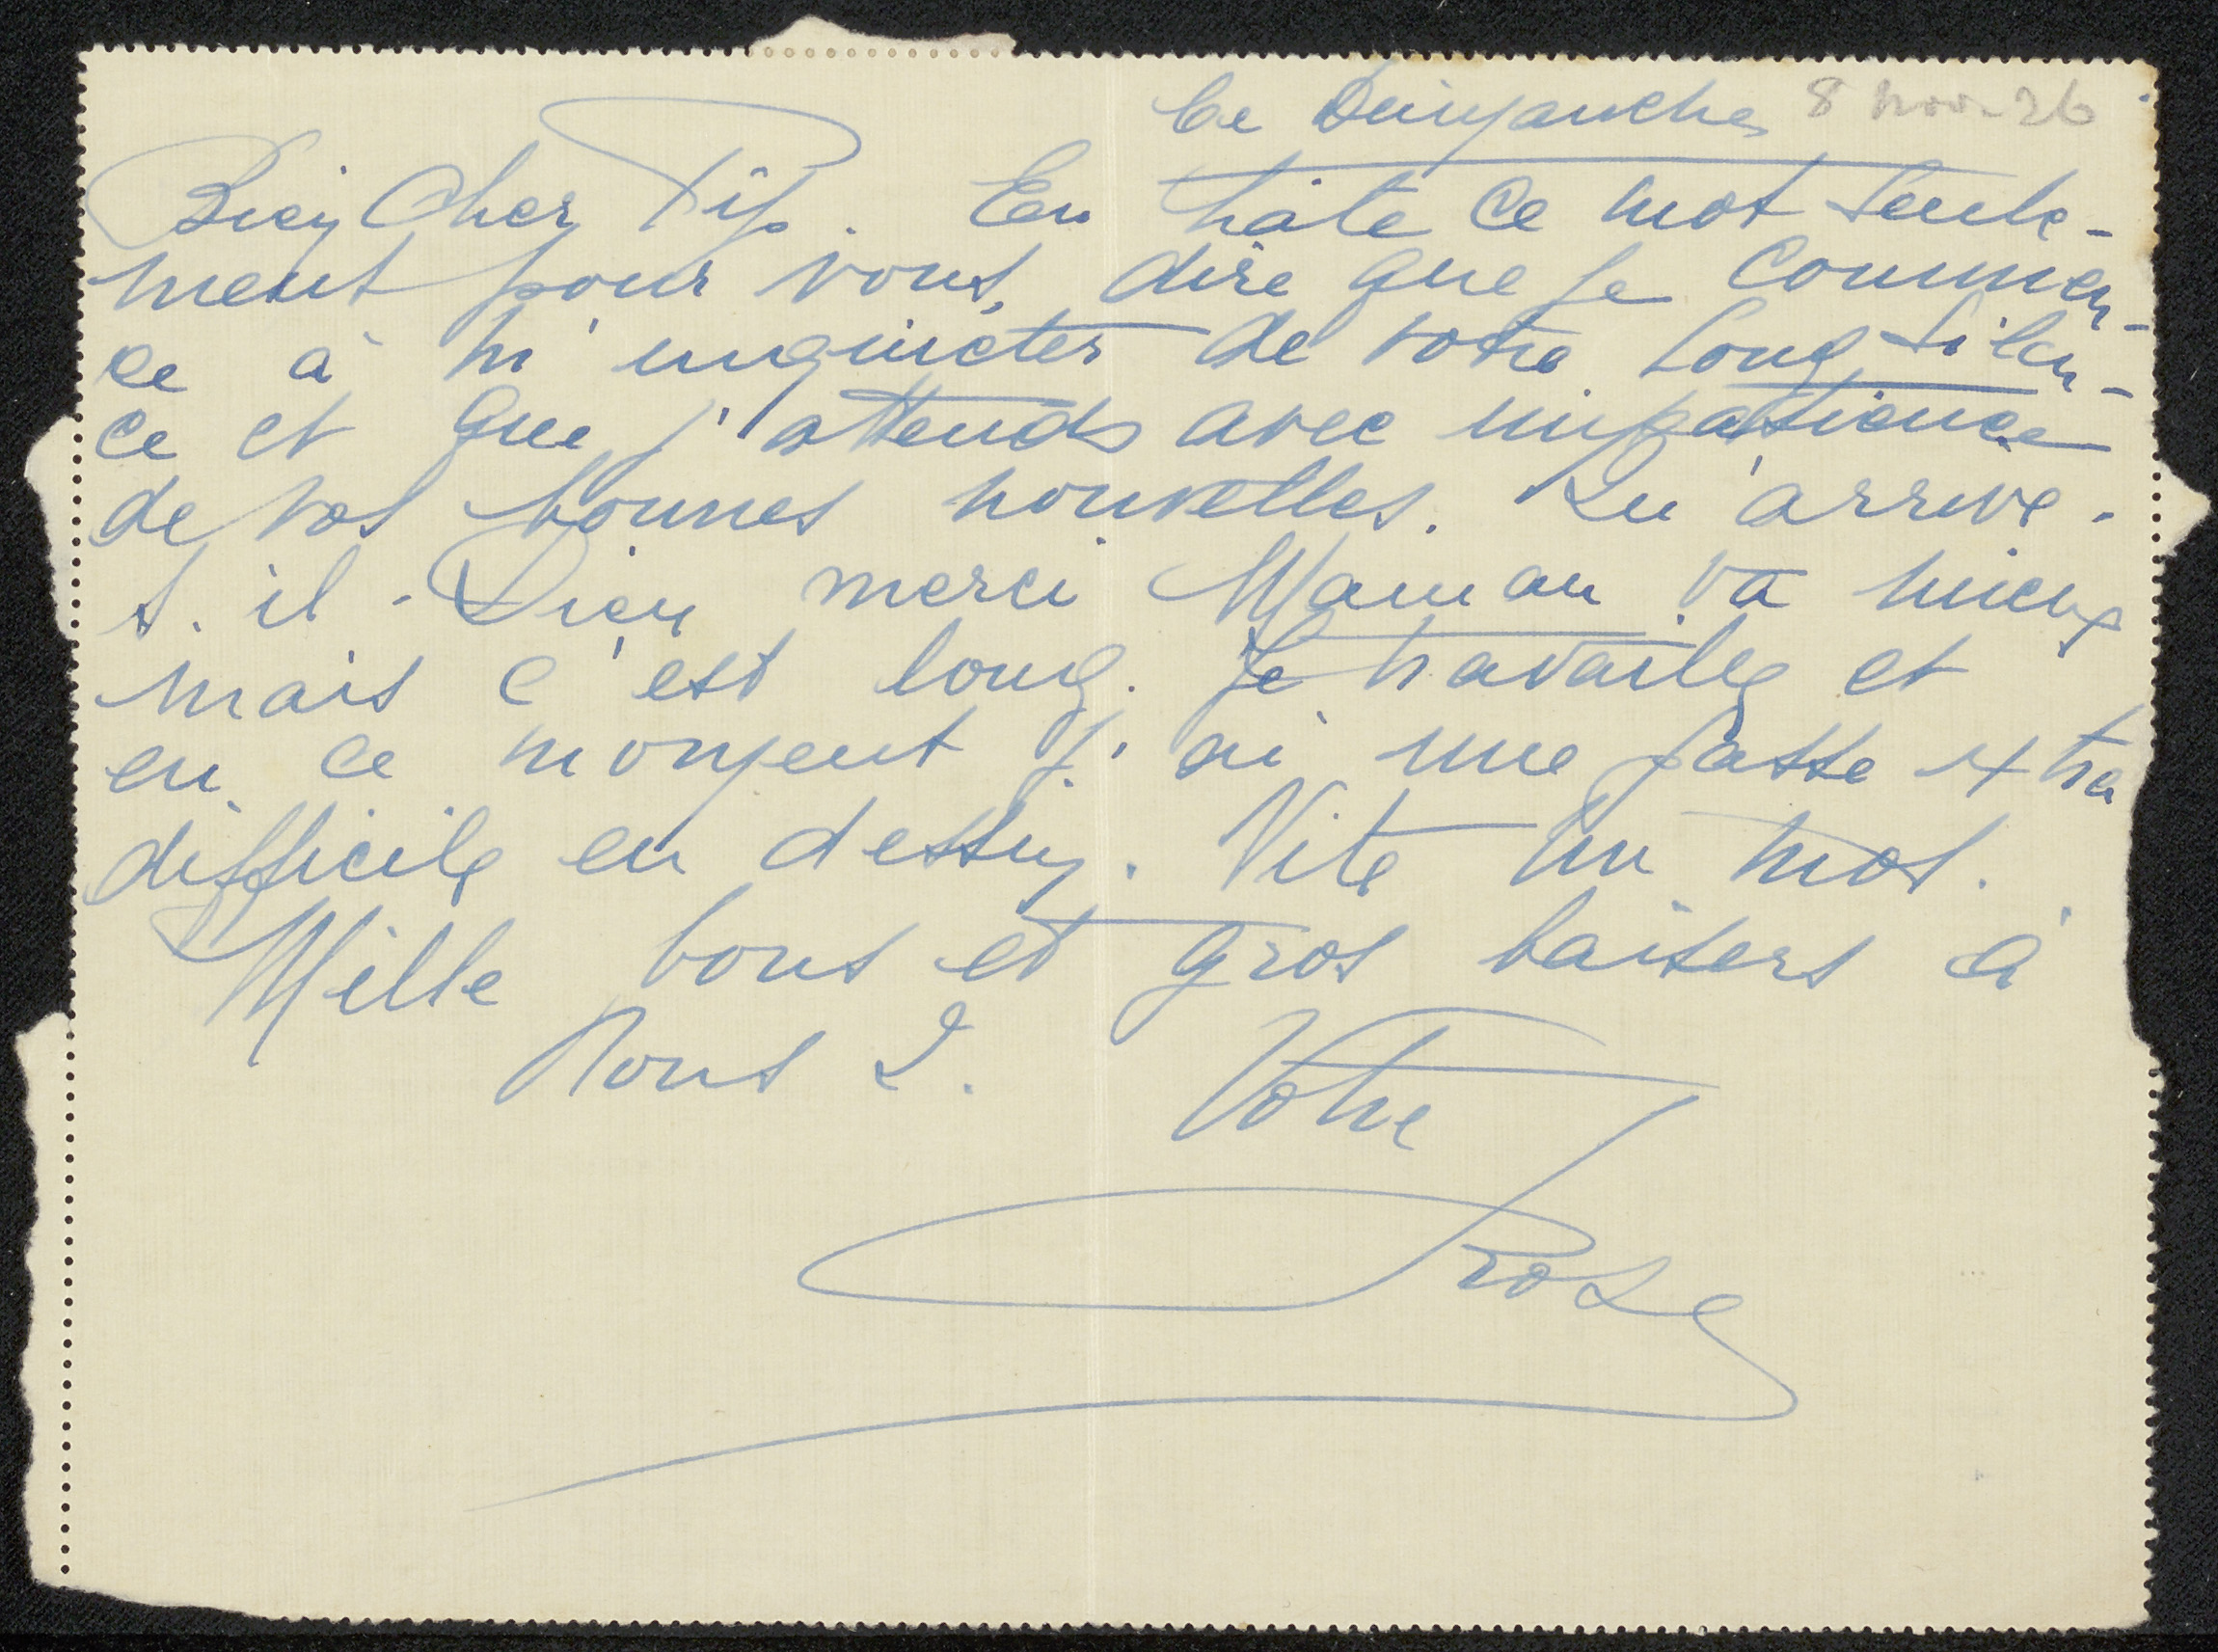 Ce Dimanche 8 nov. 26
Bien Cher Pip. En hâte ce mot seule-
ment pour vous dire que je commen-
ce à m'inquiéter de votre long silen-
ce et que j'attends avec impatience
de vos bonnes nouvelles. Qu'arrive-
t-il - Dieu merci Maman va mieux
mais c'est long. Je travaille et
en ce moment j'ai une passe extra
difficile en dessin. Vite un mot.
Mille bons et gros baisers à
Vous 2. Votre
Rose